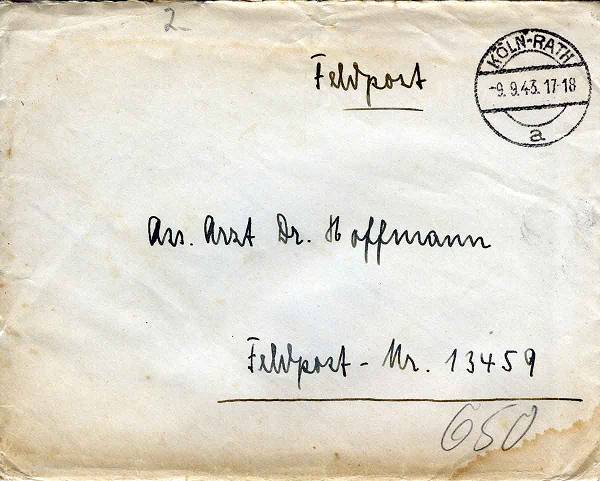 2
Feldpost
KÖLN-RATH
-9.9.43.17-18
a
Ass. Arzt Dr. Hoffmann
Feldpost - Nr. 13459
650